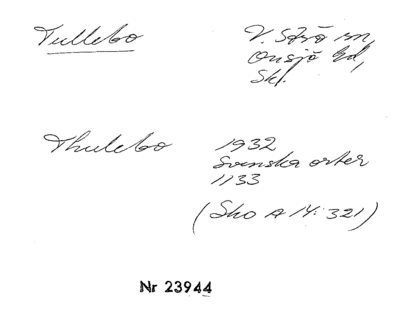 Tullebo
V. Strö sn,
Onsjö hd,
Sk.
Thulebo
1932
Svenska orter
1133
(Sko A 14: 321)
Nr 23944